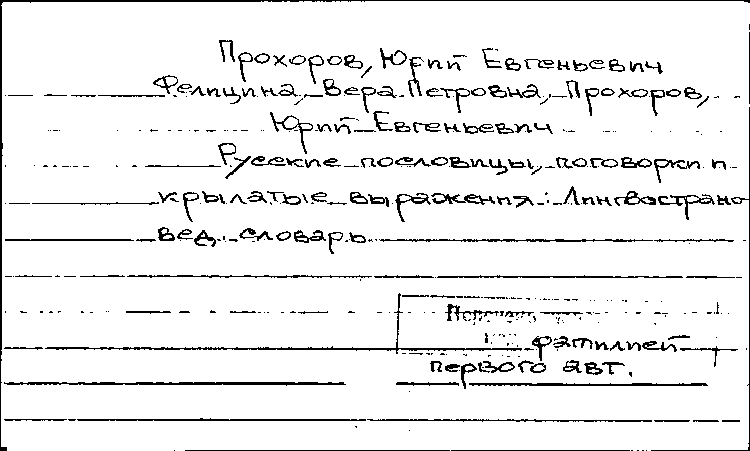 Прохоров, Юрий Евгеньевич
Фелицина, Вера Петровна, Прохоров,
Юрий Евгеньевич
Русские пословицы, поговорки и
крылатые выражения: Лингвострано
вед. словарь
фамилией
первого авт.